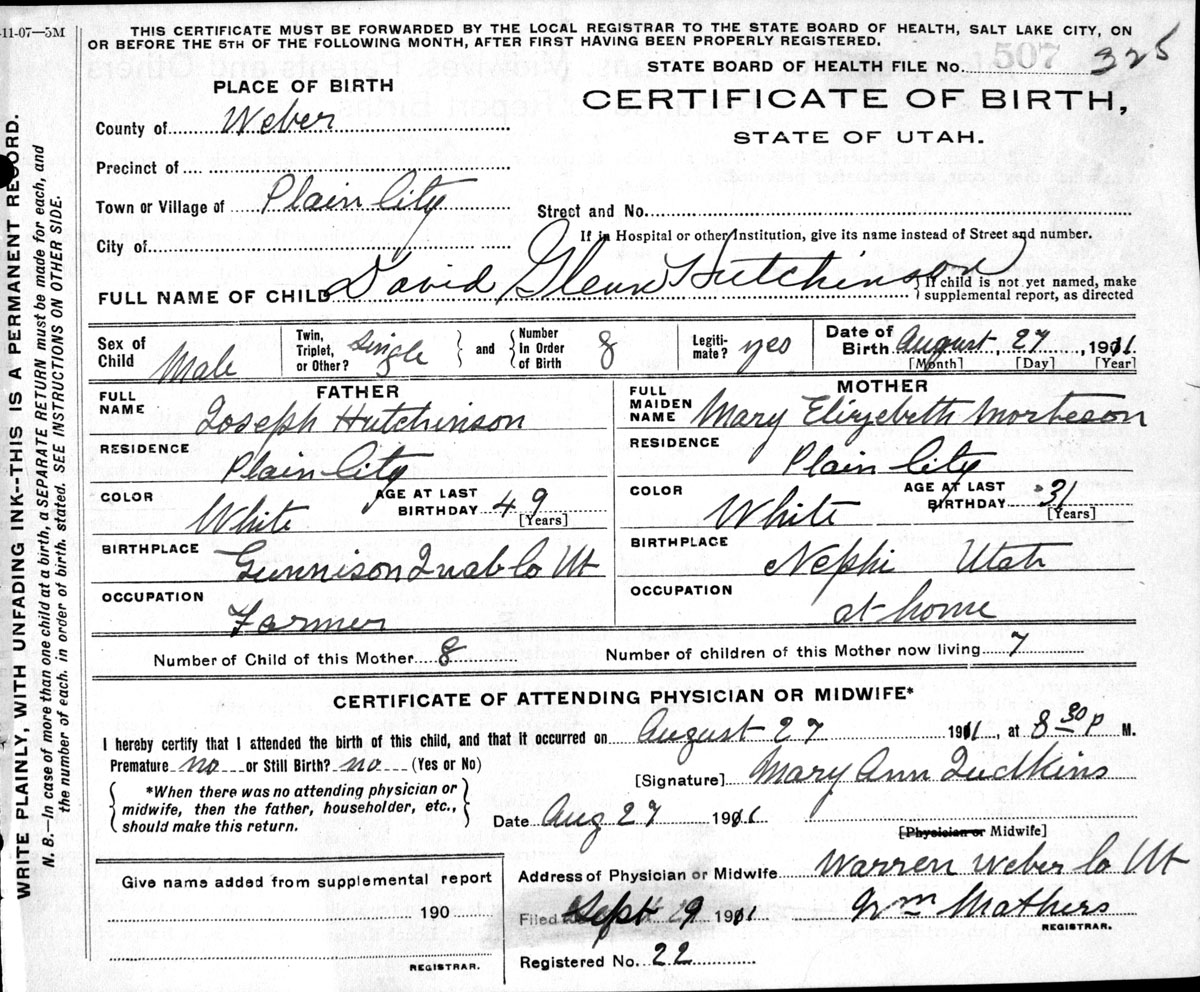 -11-07—5M
THIS CERTIFICATE MUST BE FORWARDED BY THE LOCAL REGISTRAR TO THE STATE BOARD OF HEALTH, SALT LAKE CITY, ON
OR BEFORE THE 5TH OF THE FOLLOWING MONTH, AFTER FIRST HAVING BEEN PROPERLY REGISTERED.
STATE BOARD OF HEALTH FILE No. 507 325
PLACE OF BIRTH
CERTIFICATE OF BIRTH,
STATE OF UTAH.
County of Weber
Precinct of
Town or Village of Plain City
Street and No.
City of
If in Hospital or other Institution, give its name instead of Street and number.
FULL NAME OF CHILD David Glenn Hutchinson
If child is not yet named, make
supplemental report, as directed
Sex of Child Male
Twin, Triplet, or Other? Single and Number In Order of Birth 8
Legiti-mate? yes
Date of Birth August, 27, 1911.
[Month] [Day] [Year]
FATHER
FULL NAME Joseph Hutchinson
RESIDENCE Plain City
COLOR White
AGE AT LAST BIRTHDAY 49
[Years]
BIRTHPLACE Gunnison Co Ut
OCCUPATION Farmer
MOTHER
FULL MAIDEN NAME Mary Elizebeth Morteson
RESIDENCE Plain City
COLOR White
AGE AT LAST BIRTHDAY 31
[Years]
BIRTHPLACE Nephi Utah
OCCUPATION at home
Number of Child of this Mother 8
Number of children of this Mother now living 7
CERTIFICATE OF ATTENDING PHYSICIAN OR MIDWIFE*
I hereby certify that I attended the birth of this child, and that it occurred on August 27 1911, at 8 30 P M.
Premature no or Still Birth? no (Yes or No)
*When there was no attending physician or
midwife, then the father, householder, etc.,
should make this return.
[Signature] Mary Ann Judkins
Date Aug 27 1911
[Physician or Midwife]
Give name added from supplemental report
190
REGISTRAR.
Address of Physician or Midwife Warren Weber Co Ut
Filed Sept 29 1911 Wm Mathers
REGISTRAR.
Registered No. 22
WRITE PLAINLY, WITH UNFADING INK--THIS IS A PERMANENT RECORD.
N. B.—In case of more than one child at a birth, a SEPARATE RETURN must be made for each, and
the number of each, in order of birth, stated. SEE INSTRUCTIONS ON OTHER SIDE.